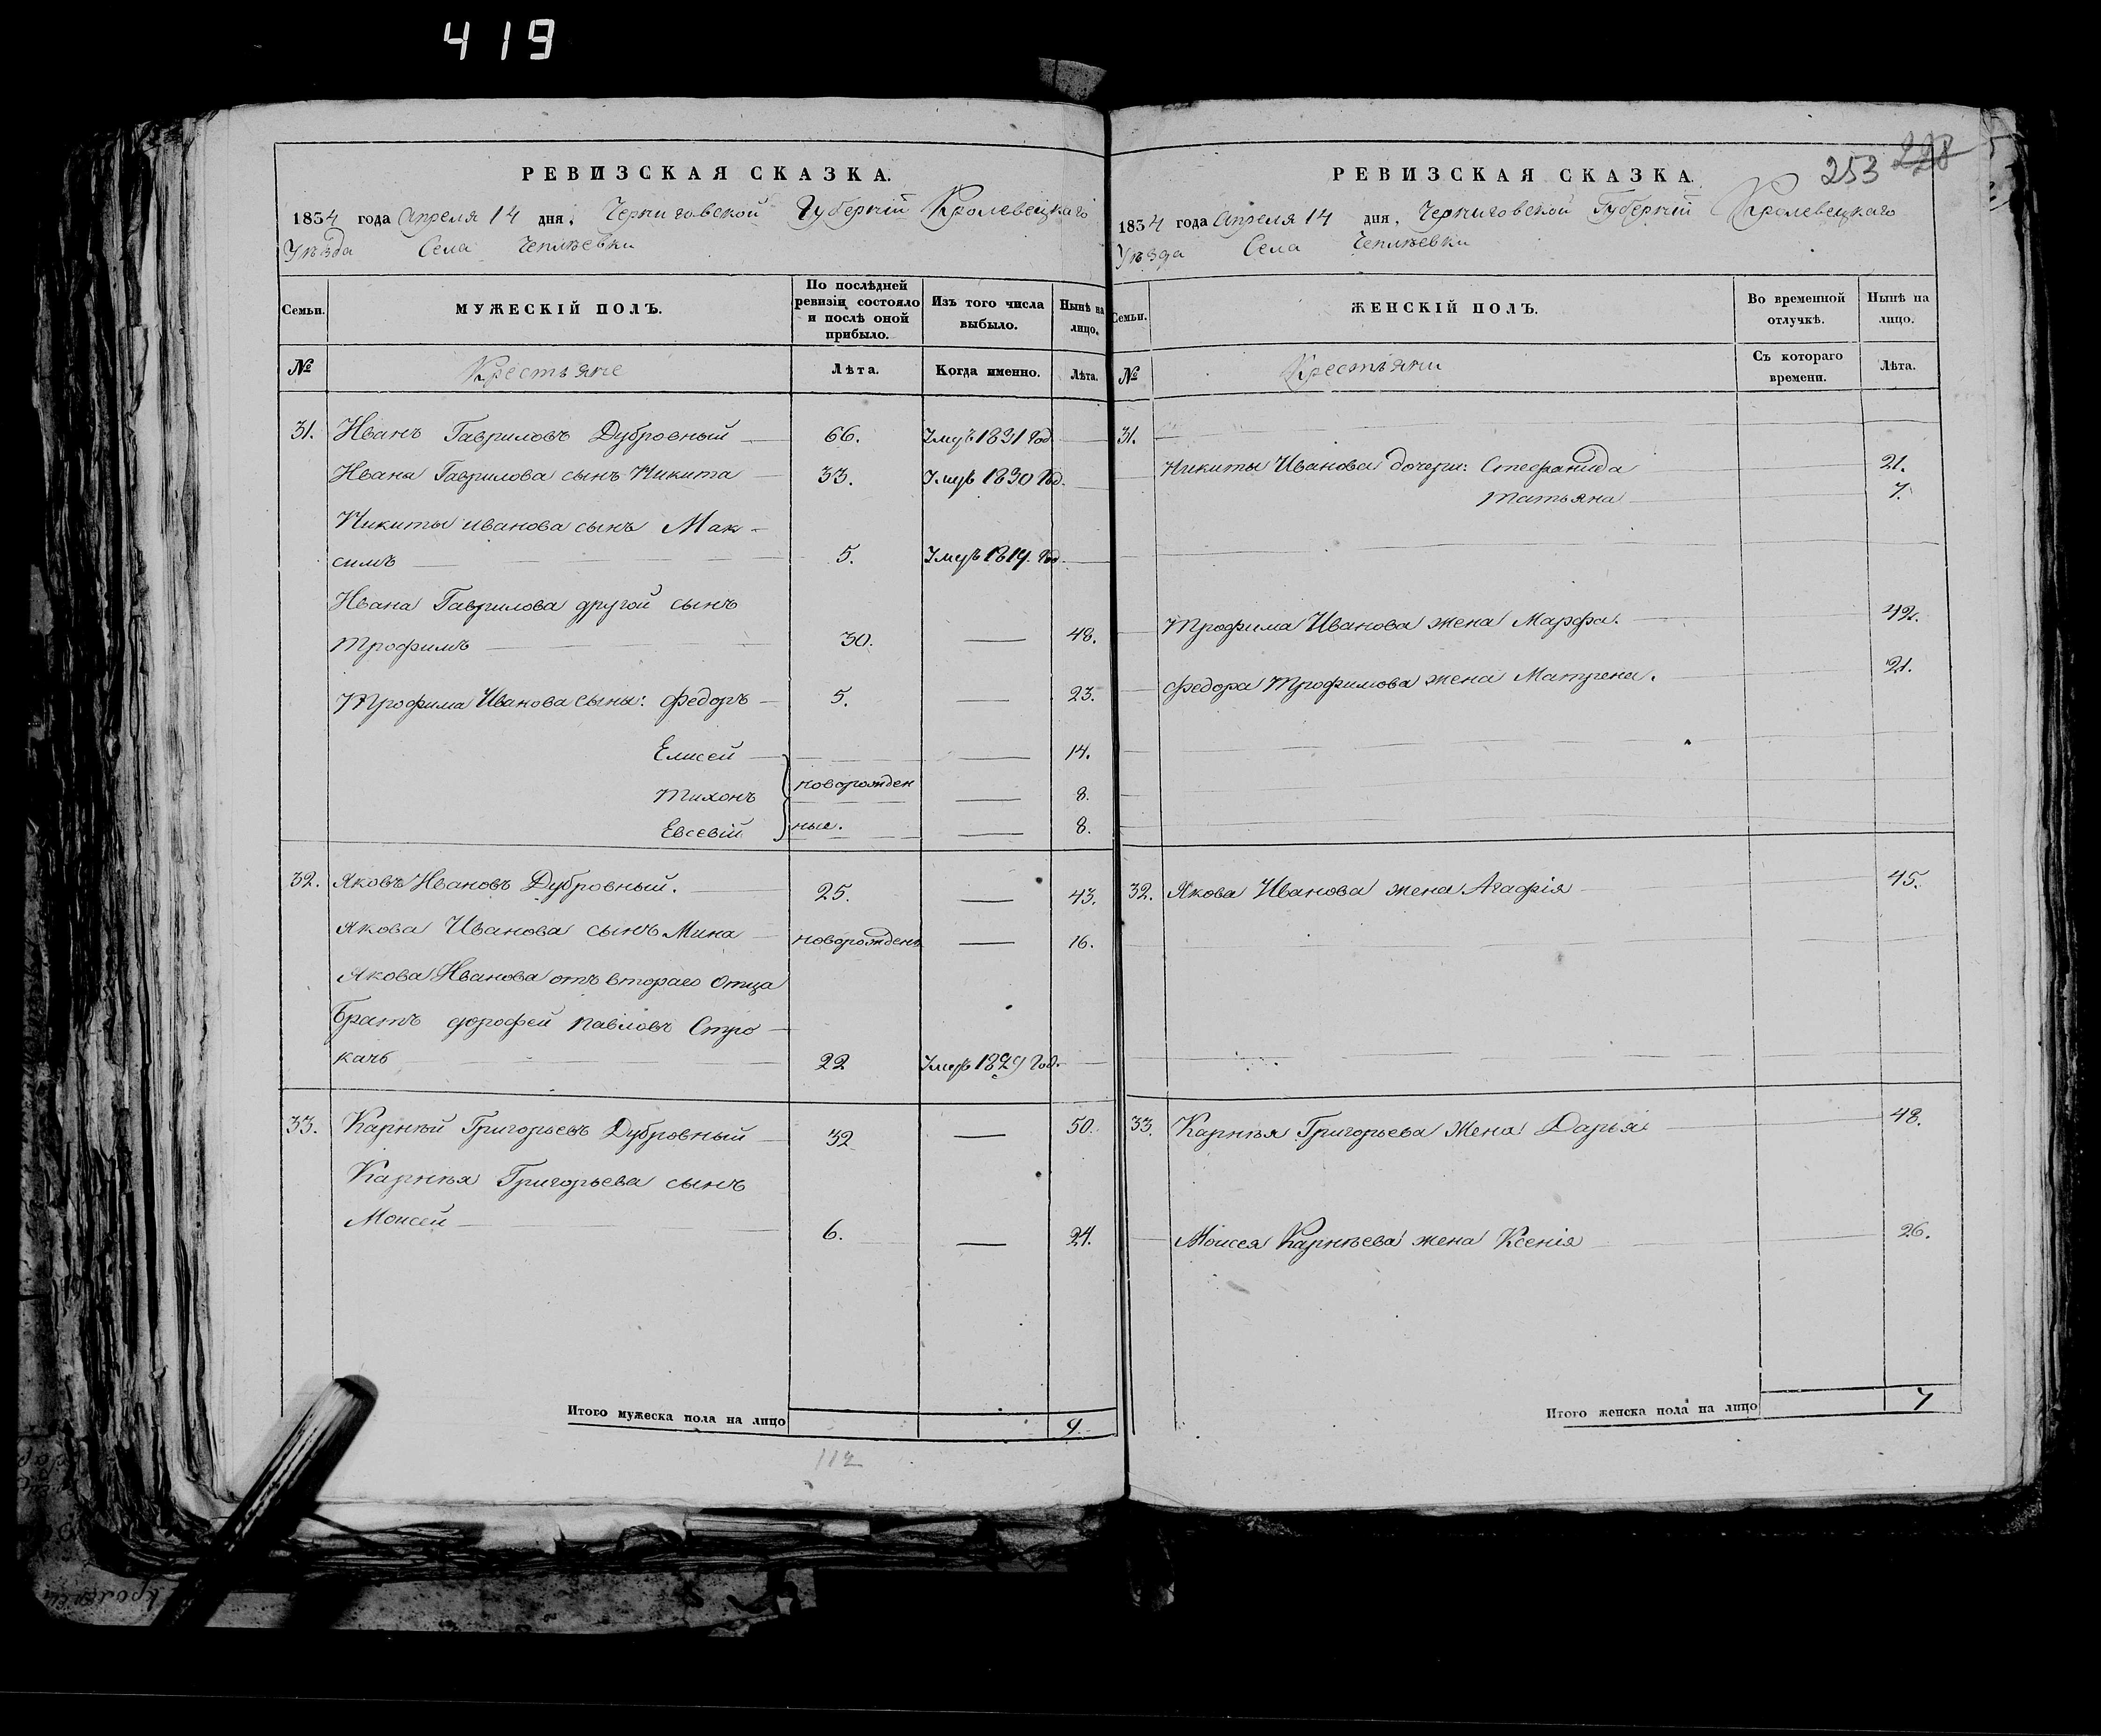 419
РЕВИЗСКАЯ СКАЗКА.
1834 года Апреля 14 дня, Черниговской Губерніи Кролевецкаго
Уѣзда Села Чепліевки
Семьи.
МУЖЕСКІЙ ПОЛЪ.
По послѣдней ревизіи состояло и послѣ оной прибыло.
Изъ того числа выбыло.
Нынѣ на лицо.
№ Крестьяне Лѣта. Когда именно. Лѣта.
31. Иванъ Гавриловъ Дубровный 66. Умеръ 1831 Год
Ивана Гаврилова сынъ Никита 33. Умеръ 1830 Год.
Никиты Иванова сынъ Мак-
симъ 5. Умеръ 1819. Год.
Ивана Гаврилова другой сынъ
Трофимъ 30. — 48.
Трофима Иванова сыны: Федоръ 5. — 23.
Елисей — 14.
Тихонъ новорожден — 8.
Евсевій ные. — 8.
32. Яковъ Ивановъ Дубровный. 25. — 43.
Якова Иванова сынъ Мина новорожденъ — 16.
Якова Иванова отъ втораго отца
Братъ Дорофей Павловъ Стро-
качъ 22 Умеръ 1829 Год.
33. Карнѣй Григорьевъ Дубровный 32 — 50.
Карнѣя Григорьева сынъ
Моисей 6. — 24.
Итого мужеска пола на лицо 9.
112
253 228
РЕВИЗСКАЯ СКАЗКА.
1834 года Апреля 14 дня, Черниговской Губерніи Кролевецкаго
Уѣзда Села Чепліевки
Семьи.
ЖЕНСКІЙ ПОЛЪ.
Во временной отлучкѣ.
Нынѣ на лицо.
№ Крестьяни Съ котораго времени. Лѣта.
31.
Никиты Иванова дочери: Стефанида 21.
Татьяна 7.
Трофима Иванова жена Марфа. 42.
Федора Трофимова жена Матрена. 21.
32. Якова Иванова жена Агафія 45.
33. Карнѣя Григорьева Жена Дарья 48.
Моисея Карнѣева жена Ксенія 26.
Итого женска пола на лицо 7